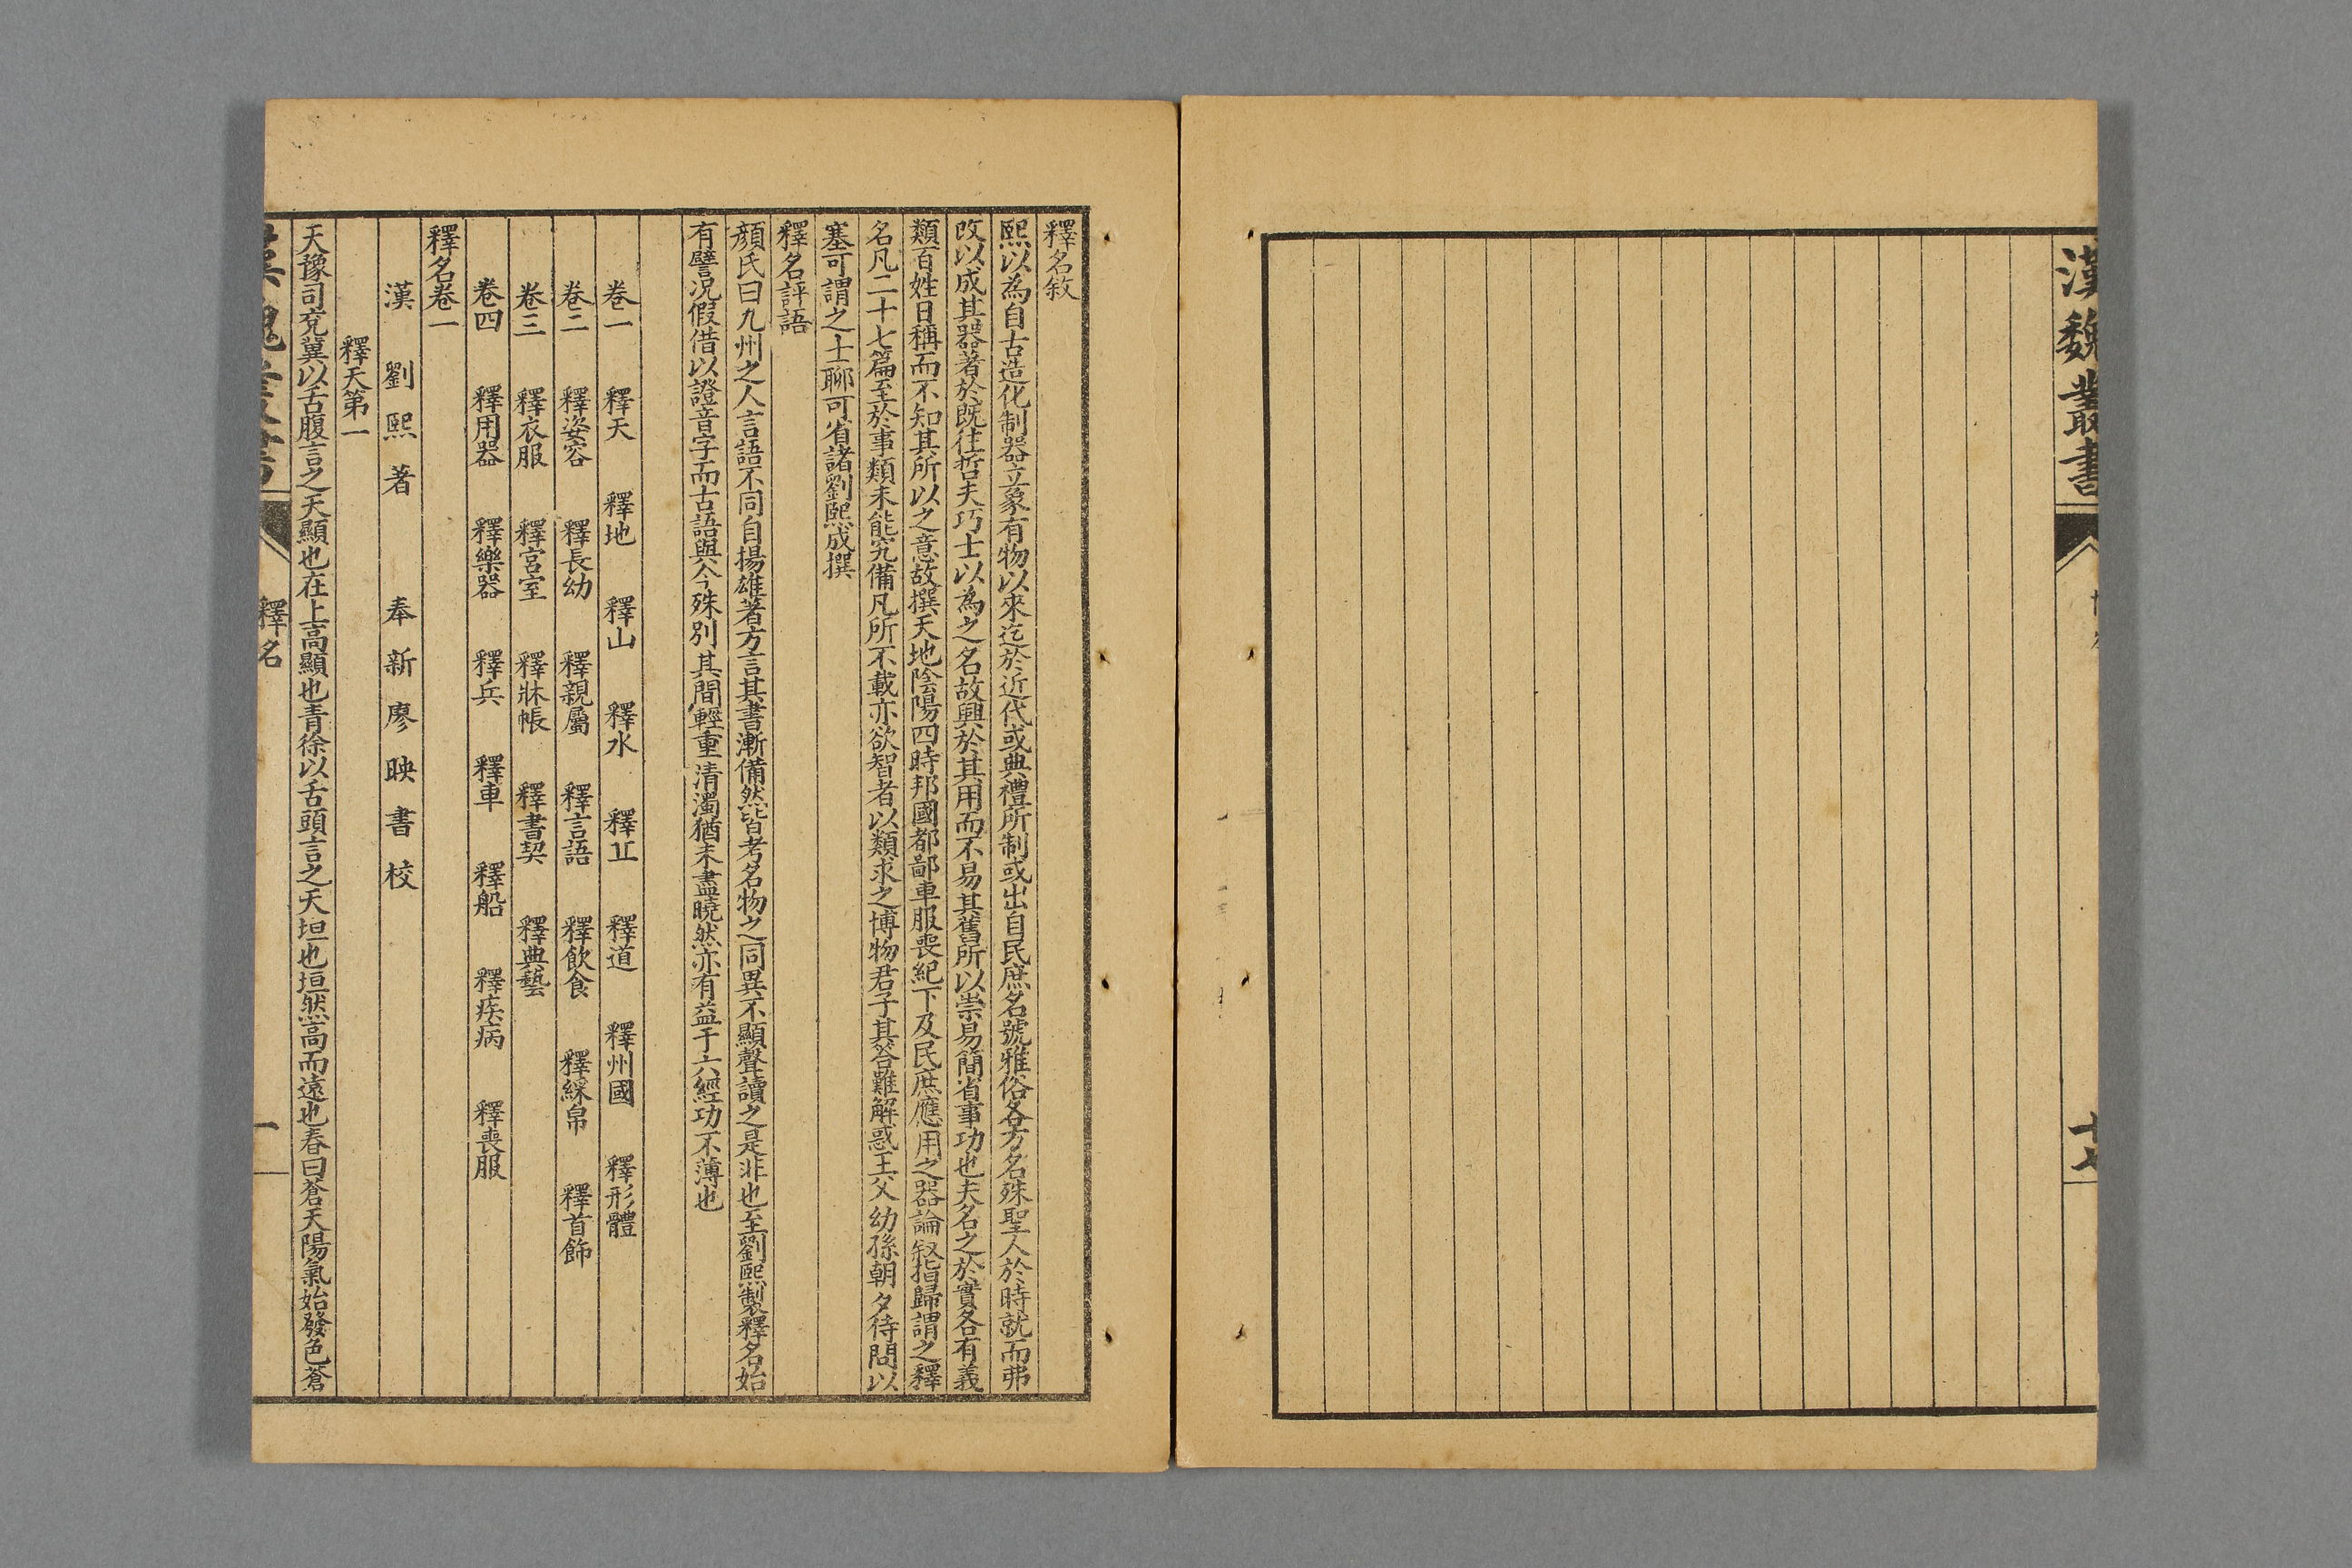 漢魏叢書
十七
釋名敘
熙以為自古造化制器立象有物以來迄於近代或典禮所制或出自民庶名號雅俗各方名殊聖人於時就而弗
改以成其器著於既往哲夫巧士以為之名故興於其用而不易其舊所以崇易簡省事功也夫名之於實各有義
類百姓日稱而不知其所以之意故撰天地陰陽四時邦國都鄙車服喪紀下及民庶應用之器論敘指歸謂之釋
名凡二十七篇至於事類未能究備凡所不載亦欲智者以類求之博物君子其答難解惑王父幼孫朝夕待問以
塞可謂之士聊可省諸劉熙成撰
釋名評語
顏氏曰九州之人言語不同自揚雄著方言其書漸備然皆考名物之同異不顯聲讀之是非也至劉熙製釋名始
有譬况假借以證音字而古語與今殊別其間輕重清濁猶未盡曉然亦有益于六經功不薄也
卷一 釋天 釋地 釋山 釋水 釋丘 釋道 釋州國 釋形體
卷二 釋姿容 釋長幼 釋親屬 釋言語 釋飲食 釋綵帛 釋首飾
卷三 釋衣服 釋宮室 釋牀帳 釋書契 釋典藝
卷四 釋用器 釋樂器 釋兵 釋車 釋船 釋疾病 釋喪服
釋名卷一
漢 劉熙著 奉新廖映書校
釋天第一
天豫司兗冀以舌腹言之天顯也在上高顯也青徐以舌頭言之天坦也垣然高而遠也春曰蒼天陽氣始發色蒼
漢魏叢書 釋名 一